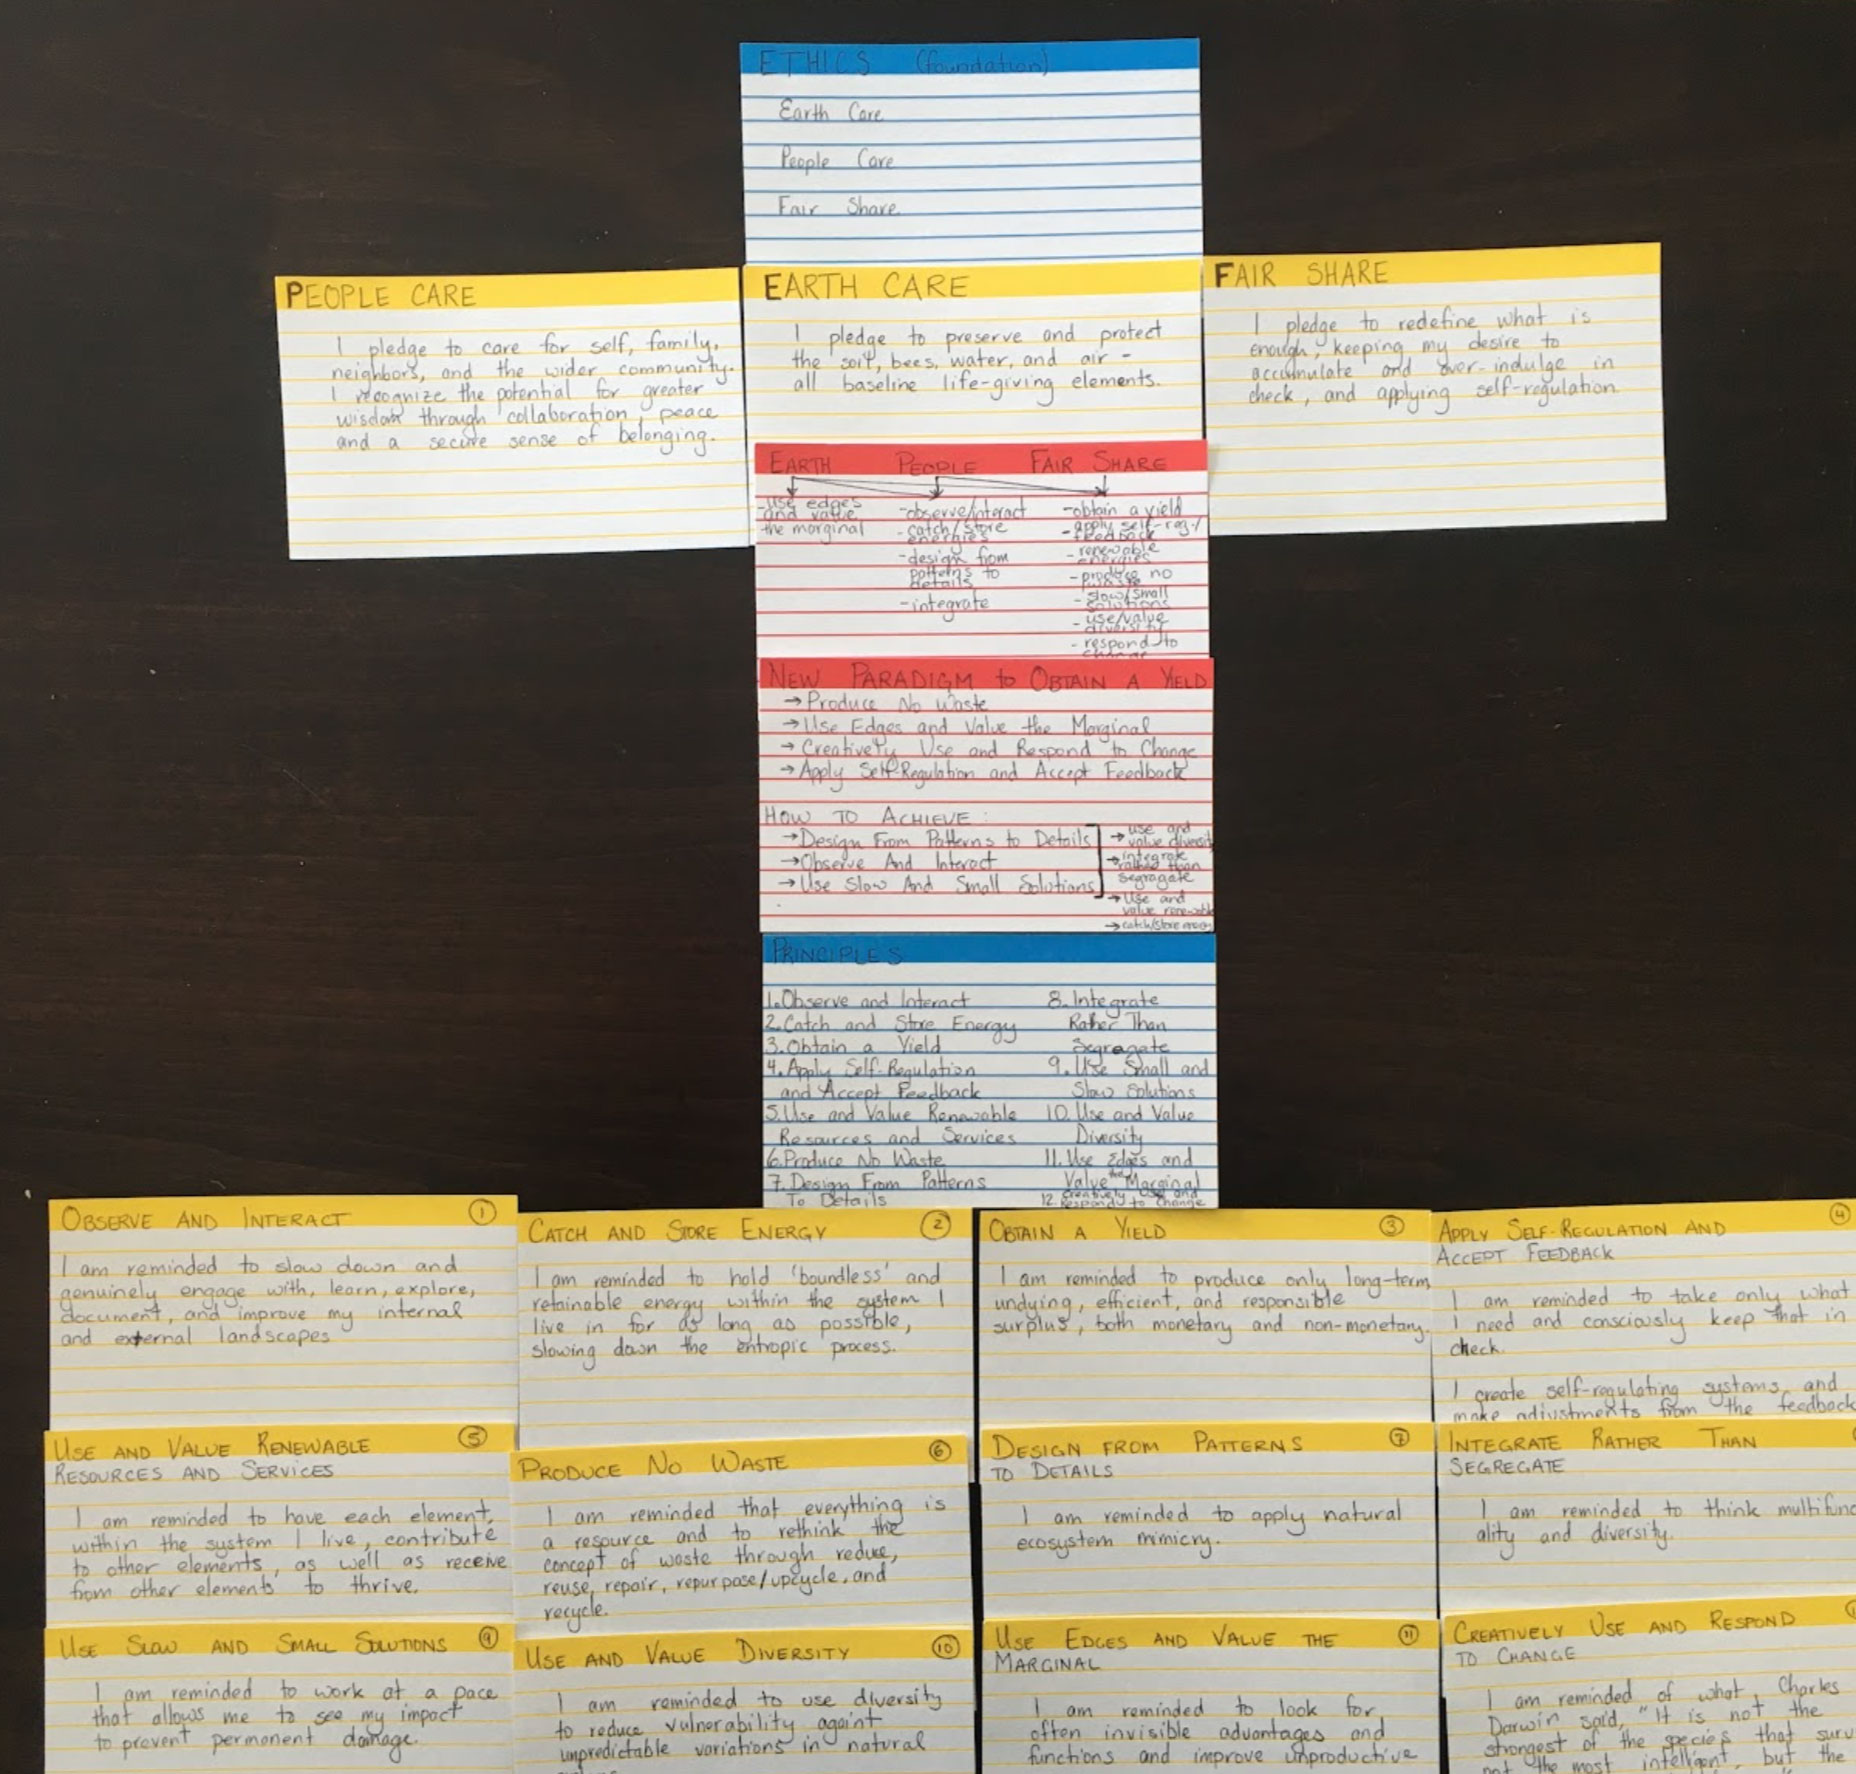 ETHICS (foundation)
Earth Care
People Care
Fair Share
PEOPLE CARE
I pledge to care for self, family,
neighbors, and the wider community.
I recognize the potential for greater
wisdom through collaboration, peace
and a secure sense of belonging.
EARTH CARE
I pledge to preserve and protect
the soil, bees, water, and air -
all baseline life-giving elements.
FAIR SHARE
I pledge to redefine what is
enough, keeping my desire to
accumulate and over-indulge in
check, and applying self-regulation.
EARTH PEOPLE FAIR SHARE
-use edges
and value
the marginal
-observe/interact
-catch/store
energies
-design from
patterns to
details
-integrate
-obtain a yield
-apply self-reg./
feedback
-renewable
energies
-produce no
waste
-slow/small
solutions
-use/value
diversity
-respond to
change
NEW PARADIGM to OBTAIN A YIELD
→Produce No Waste
→Use Edges and Value the Marginal
→Creatively Use and Respond to Change
→Apply Self-Regulation and Accept Feedback
HOW TO ACHIEVE:
→Design From Patterns to Details
→Observe And Interact
→Use Slow And Small Solutions
→use and
value diversity
→integrate
rather than
segragate
→Use and
value renewable
→catch/store energy
PRINCIPLES
1.Observe and Interact
2.Catch and Store Energy
3.Obtain a Yield
4.Apply Self-Regulation
and Accept Feedback
5.Use and Value Renewable
Resources and Services
6.Produce No Waste
7.Design From Patterns
To Details
8.Integrate
Rather Than
Segragate
9.Use Small and
Slow Solutions
10.Use and Value
Diversity
11.Use Edges and
Value the Marginal
12.Creatively Use and
Respond to Change
OBSERVE AND INTERACT 1
I am reminded to slow down and
genuinely engage with, learn, explore,
document, and improve my internal
and external landscapes
CATCH AND STORE ENERGY 2
I am reminded to hold 'boundless' and
retainable energy within the system I
live in for as long as possible,
slowing down the entropic process.
OBTAIN A YIELD 3
I am reminded to produce only long-term,
undying, efficient, and responsible
surplus, both monetary and non-monetary.
APPLY SELF-REGULATION AND 4
ACCEPT FEEDBACK
I am reminded to take only what
I need and consciously keep that in
check.
I create self-regulating systems and
make adjustments from the feedback
USE AND VALUE RENEWABLE 5
RESOURCES AND SERVICES
I am reminded to have each element,
within the system I live, contribute
to other elements, as well as receive
from other elements to thrive.
PRODUCE NO WASTE 6
I am reminded that everything is
a resource and to rethink the
concept of waste through reduce,
reuse, repair, repurpose/upcycle, and
recycle.
DESIGN FROM PATTERNS 7
TO DETAILS
I am reminded to apply natural
ecosystem mimicry.
INTEGRATE RATHER THAN
SEGREGATE
I am reminded to think multifunc
ality and diversity.
USE SLOW AND SMALL SOLUTIONS 9
I am reminded to work at a pace
that allows me to see my impact
to prevent permanent damage.
USE AND VALUE DIVERSITY 10
I am reminded to use diversity
to reduce vulnerability againt
unpredictable variations in natural
USE EDGES AND VALUE THE 11
MARGINAL
I am reminded to look for
often invisible advantages and
functions and improve unproductive
CREATIVELY USE AND RESPOND
TO CHANGE
I am reminded of what Charles
Darwin said, "It is not the
strongest of the species that surv
not the most intelligent, but the